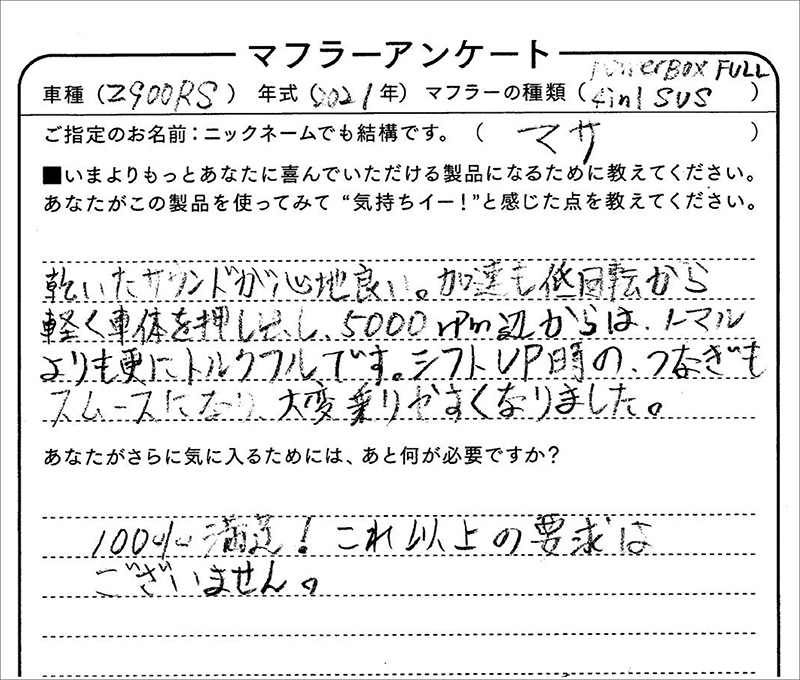 マフラーアンケート
車種（Z900RS）　年式（2021年）　マフラーの種類（PowerBox FULL 4in1 SUS）
ご指定のお名前：ニックネームでも結構です。（　マサ　）
■いまよりもっとあなたに喜んでいただける製品になるために教えてください。
あなたがこの製品を使ってみて“気持ちイー！”と感じた点を教えてください。
乾いたサウンドが心地良い。加速も低回転から
軽く車体を押し出し、5000rpm辺からは、ノーマル
よりも更にトルクフルです。シフトUP時の、つなぎも
スムースになり、大変乗りやすくなりました。
あなたがさらに気に入るためには、あと何が必要ですか？
100％満足！これ以上の要求は
ございません。